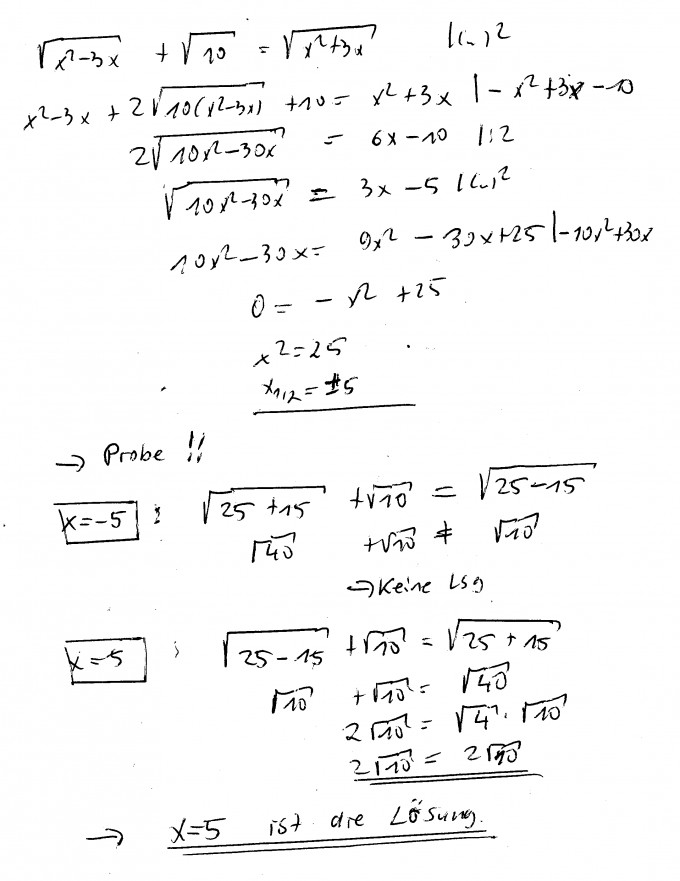 √(x²-3x) + √10 = √(x²+3x) |(..)²
x²-3x + 2√(10(x²-3x)) +10 = x²+3x |-x²+3x-10
2√(10x²-30x) = 6x-10 |:2
√(10x²-30x) = 3x-5 |(..)²
10x²-30x = 9x² - 30x+25 |-10x²+30x
0 = -x² +25
x²=25
x1,2 = ±5
→ Probe !!
x=-5 : √(25+15) +√10 = √(25-15)
√40 +√10 ≠ √10
→ Keine Lsg
x=5 : √(25-15) +√10 = √(25+15)
√10 +√10 = √40
2√10 = √4 · √10
2√10 = 2√10
→ x=5 ist die Lösung.